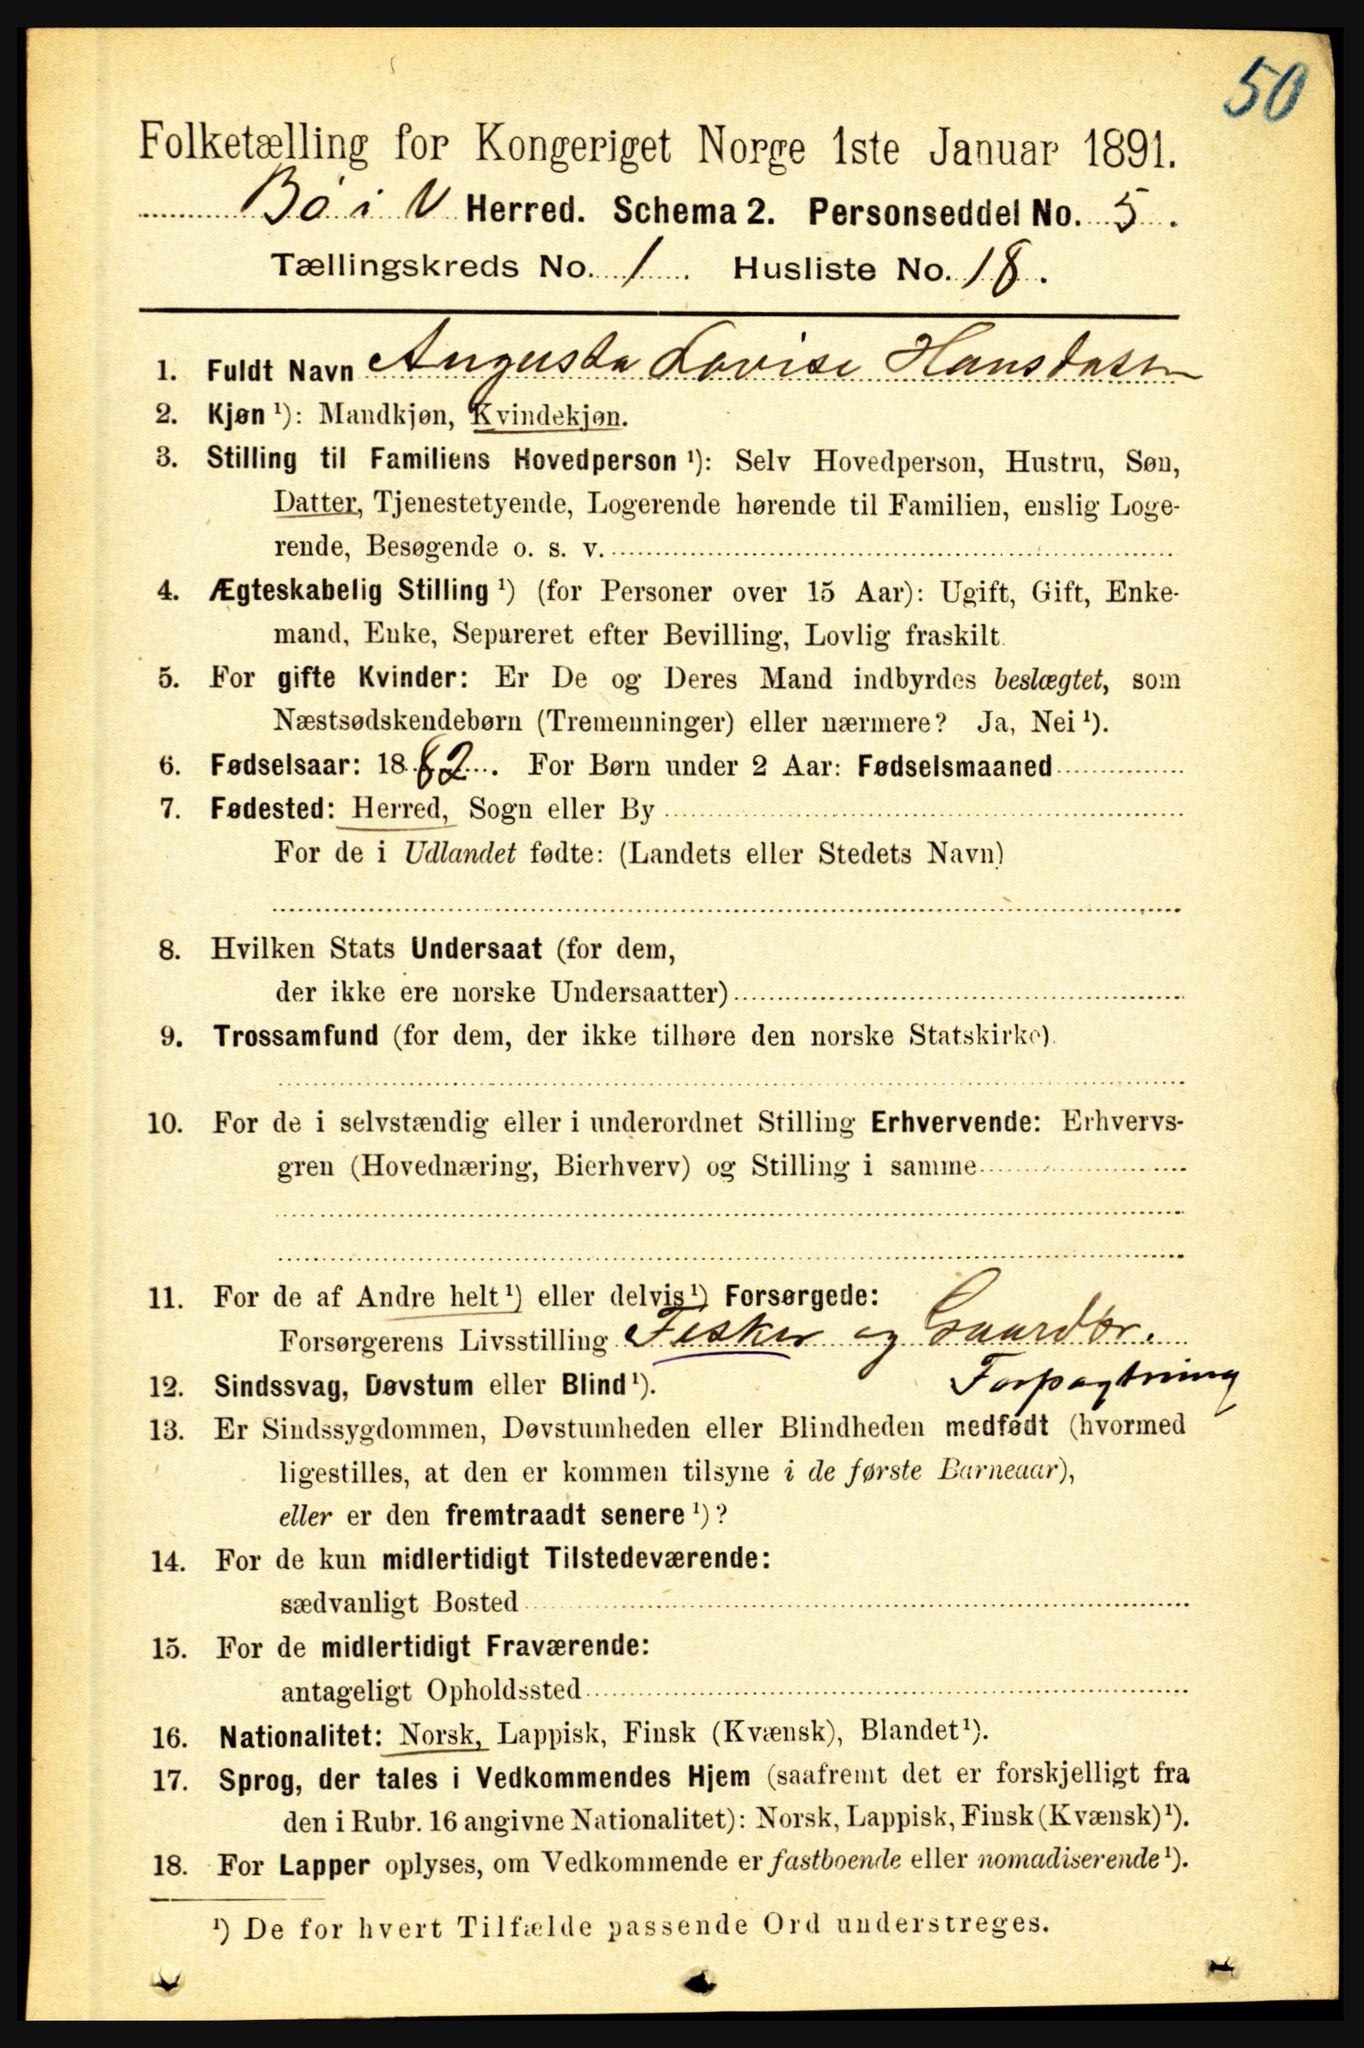 50
Folketælling for Kongeriget Norge 1ste Januar 1891.
Bö i V Herred. Schema 2. Personseddel No. 5.
Tællingskreds No. 1. Husliste No. 18.
1. Fuldt Navn Augusta Lovise Hansdatter
2. Kjøn ¹): Mandkjøn, Kvindekjøn.
3. Stilling til Familiens Hovedperson ¹): Selv Hovedperson, Hustru, Søn,
Datter, Tjenestetyende, Logerende hørende til Familien, enslig Loge-
rende, Besøgende o. s. v.
4. Ægteskabelig Stilling ¹) (for Personer over 15 Aar): Ugift, Gift, Enke-
mand, Enke, Separeret efter Bevilling, Lovlig fraskilt.
5. For gifte Kvinder: Er De og Deres Mand indbyrdes beslægtet, som
Næstsødskendebørn (Tremenninger) eller nærmere? Ja, Nei ¹).
6. Fødselsaar: 1882. For Børn under 2 Aar: Fødselsmaaned
7. Fødested: Herred, Sogn eller By
For de i Udlandet fødte: (Landets eller Stedets Navn)
8. Hvilken Stats Undersaat (for dem,
der ikke ere norske Undersaatter)
9. Trossamfund (for dem, der ikke tilhøre den norske Statskirke).
10. For de i selvstændig eller i underordnet Stilling Erhvervende: Erhvervs-
gren (Hovednæring, Bierhverv) og Stilling i samme
11. For de af Andre helt ¹) eller delvis ¹) Forsørgede:
Forsørgerens Livsstilling Fisker og Gaardbr.
Forpagtning
12. Sindssvag, Døvstum eller Blind ¹).
13. Er Sindssygdommen, Døvstumheden eller Blindheden medfødt (hvormed
ligestilles, at den er kommen tilsyne i de første Barneaar),
eller er den fremtraadt senere ¹)?
14. For de kun midlertidigt Tilstedeværende:
sædvanligt Bosted
15. For de midlertidigt Fraværende:
antageligt Opholdssted
16. Nationalitet: Norsk, Lappisk, Finsk (Kvænsk), Blandet ¹).
17. Sprog, der tales i Vedkommendes Hjem (saafremt det er forskjelligt fra
den i Rubr. 16 angivne Nationalitet): Norsk, Lappisk, Finsk (Kvænsk) ¹).
18. For Lapper oplyses, om Vedkommende er fastboende eller nomadiserende ¹).
¹) De for hvert Tilfælde passende Ord understreges.